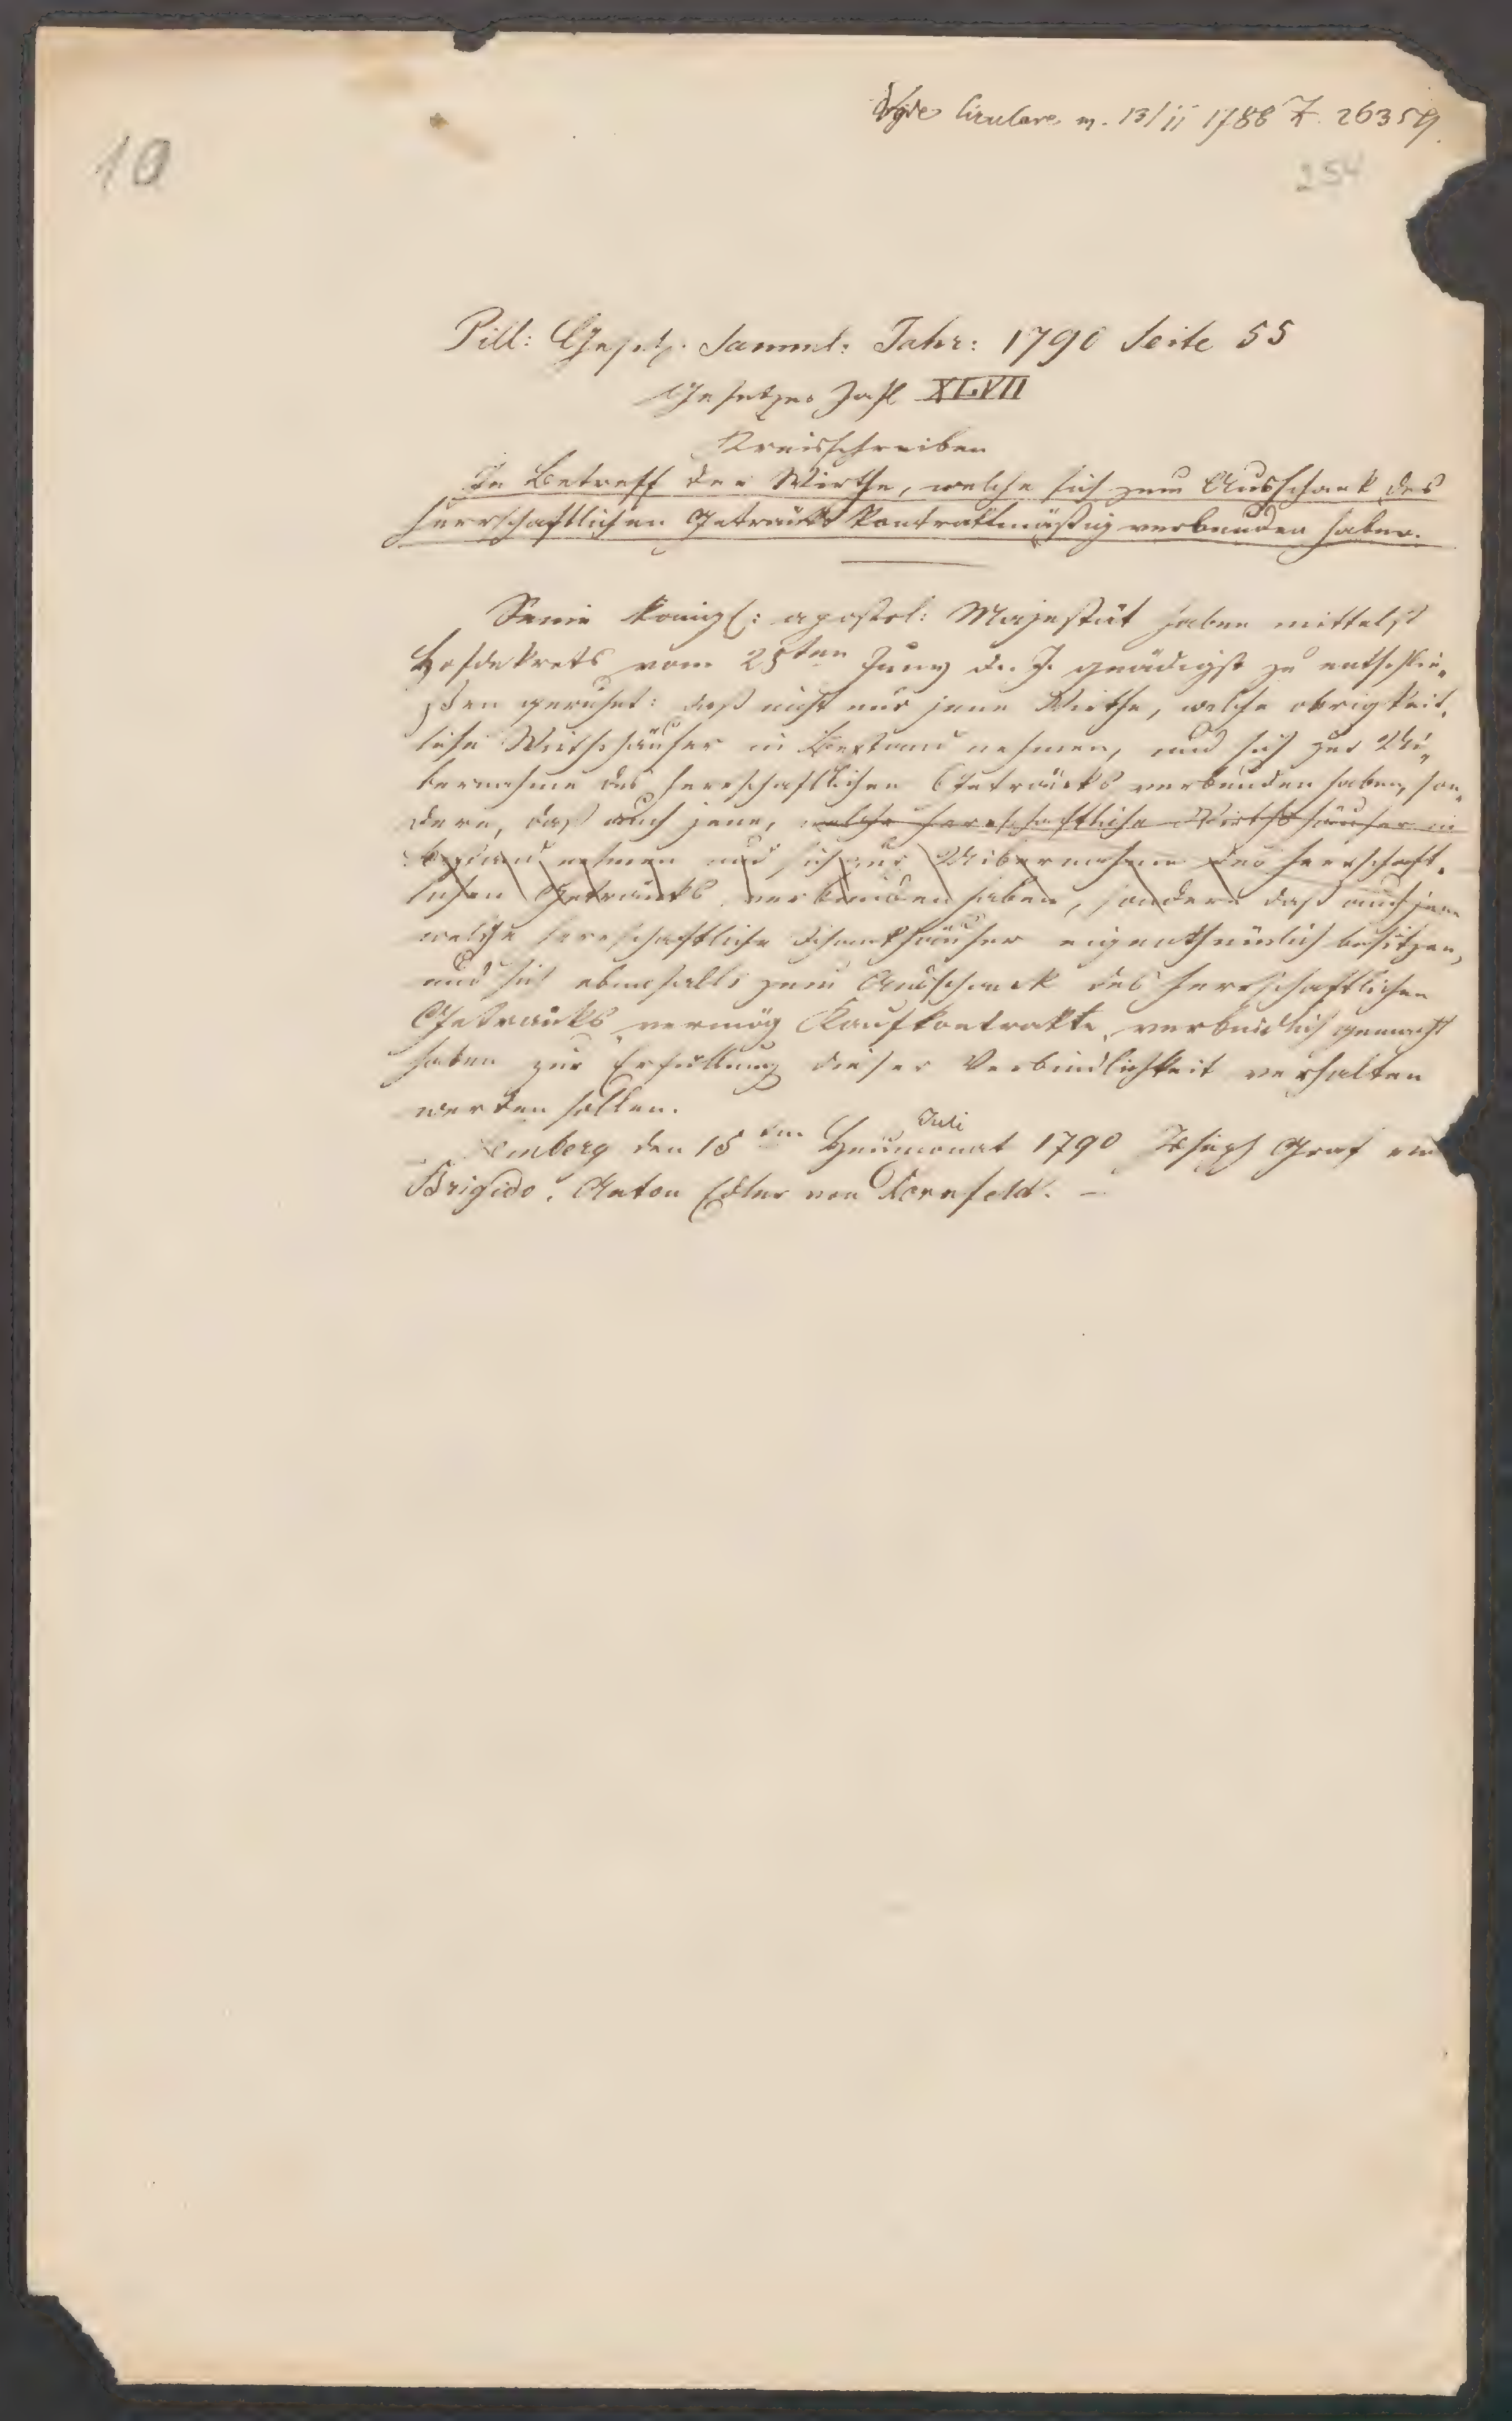 Vide Circulare v. 13/11 1788 Z. 26359.
10
254
Pill: Gesetz. Samml: Jahr: 1790 Seite 55
Gesetzes Zahl XLVII
Kreisschreiben
In Betreff der Wirthe, welche sich zum Ausschank des
herrschaftlichen Getränks kontraktmäßig verbunden haben.
Seine königl: apostol: Majestät haben mittelst
Hofdekrets vom 25ten Juny d. J. gnädigst zu entschlie„
ßen geruhet: daß nicht nur jene Wirthe, welche obrigkeit„
liche Wirthshäuser in Bestand nehmen, und sich zur Ui„
bernahme des herrschaftlichen Getränks verbunden haben, son„
dern, daß auch jene, welche herrschaftliche Wirthshäuser in
Bestand nehmen und sich zur Uibernahme des herrschaft„
lichen Getränks verbunden haben, sondern daß auch jene
welche herrschaftliche Schankhäuser eigenthümlich besitzen,
und sich ebenfalls zum Ausschank des herrschaftlichen
Getränks vermög Kaufkontrakte verbindlich gemacht
haben zur Erfüllung dieser Verbindlichkeit verhalten
werden sollen.
Juli
Lemberg den 15ten Heumonat 1790 Joseph Graf von
Brigido. Anton Edler von Kornfeld. —